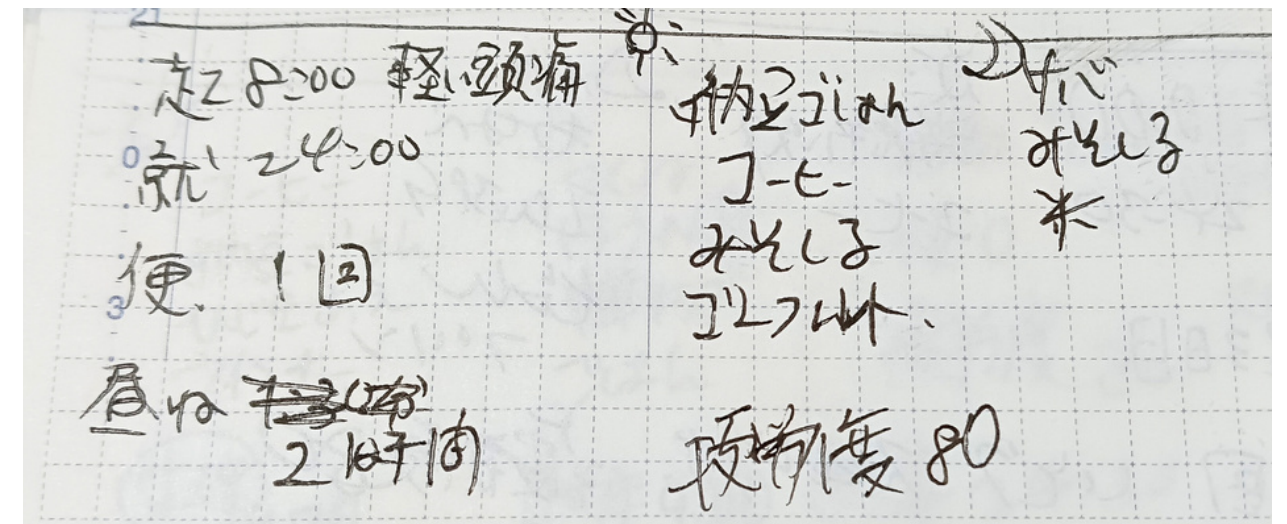 21
起 8:00 軽い頭痛
就 24:00
0
便 1回
3
昼ね
2時間
納豆ごはん
コーヒー
みそしる
サバ
みそしる
米
疲労度 80